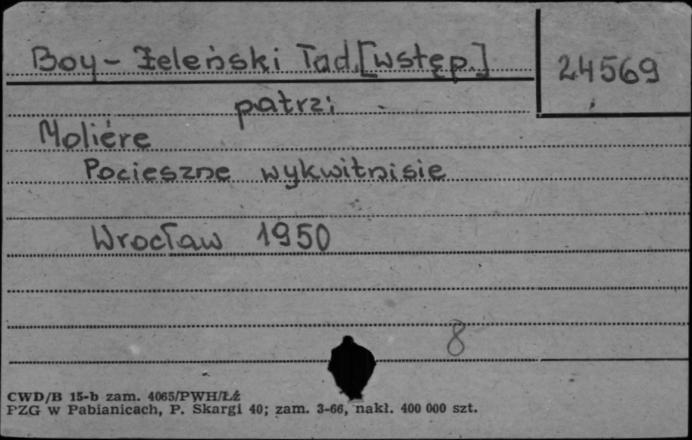 Boy-Żeleński Tad.[wstęp.] 24569
patrz:
Moliére
Pocieszne wykwitnisie
Wrocław 1950
8
CWD/B 15-b zam. 4065/PWH/Łź
PZG w Pabianicach, P. Skargi 40; zam. 3-66, nakł. 400 000 szt.